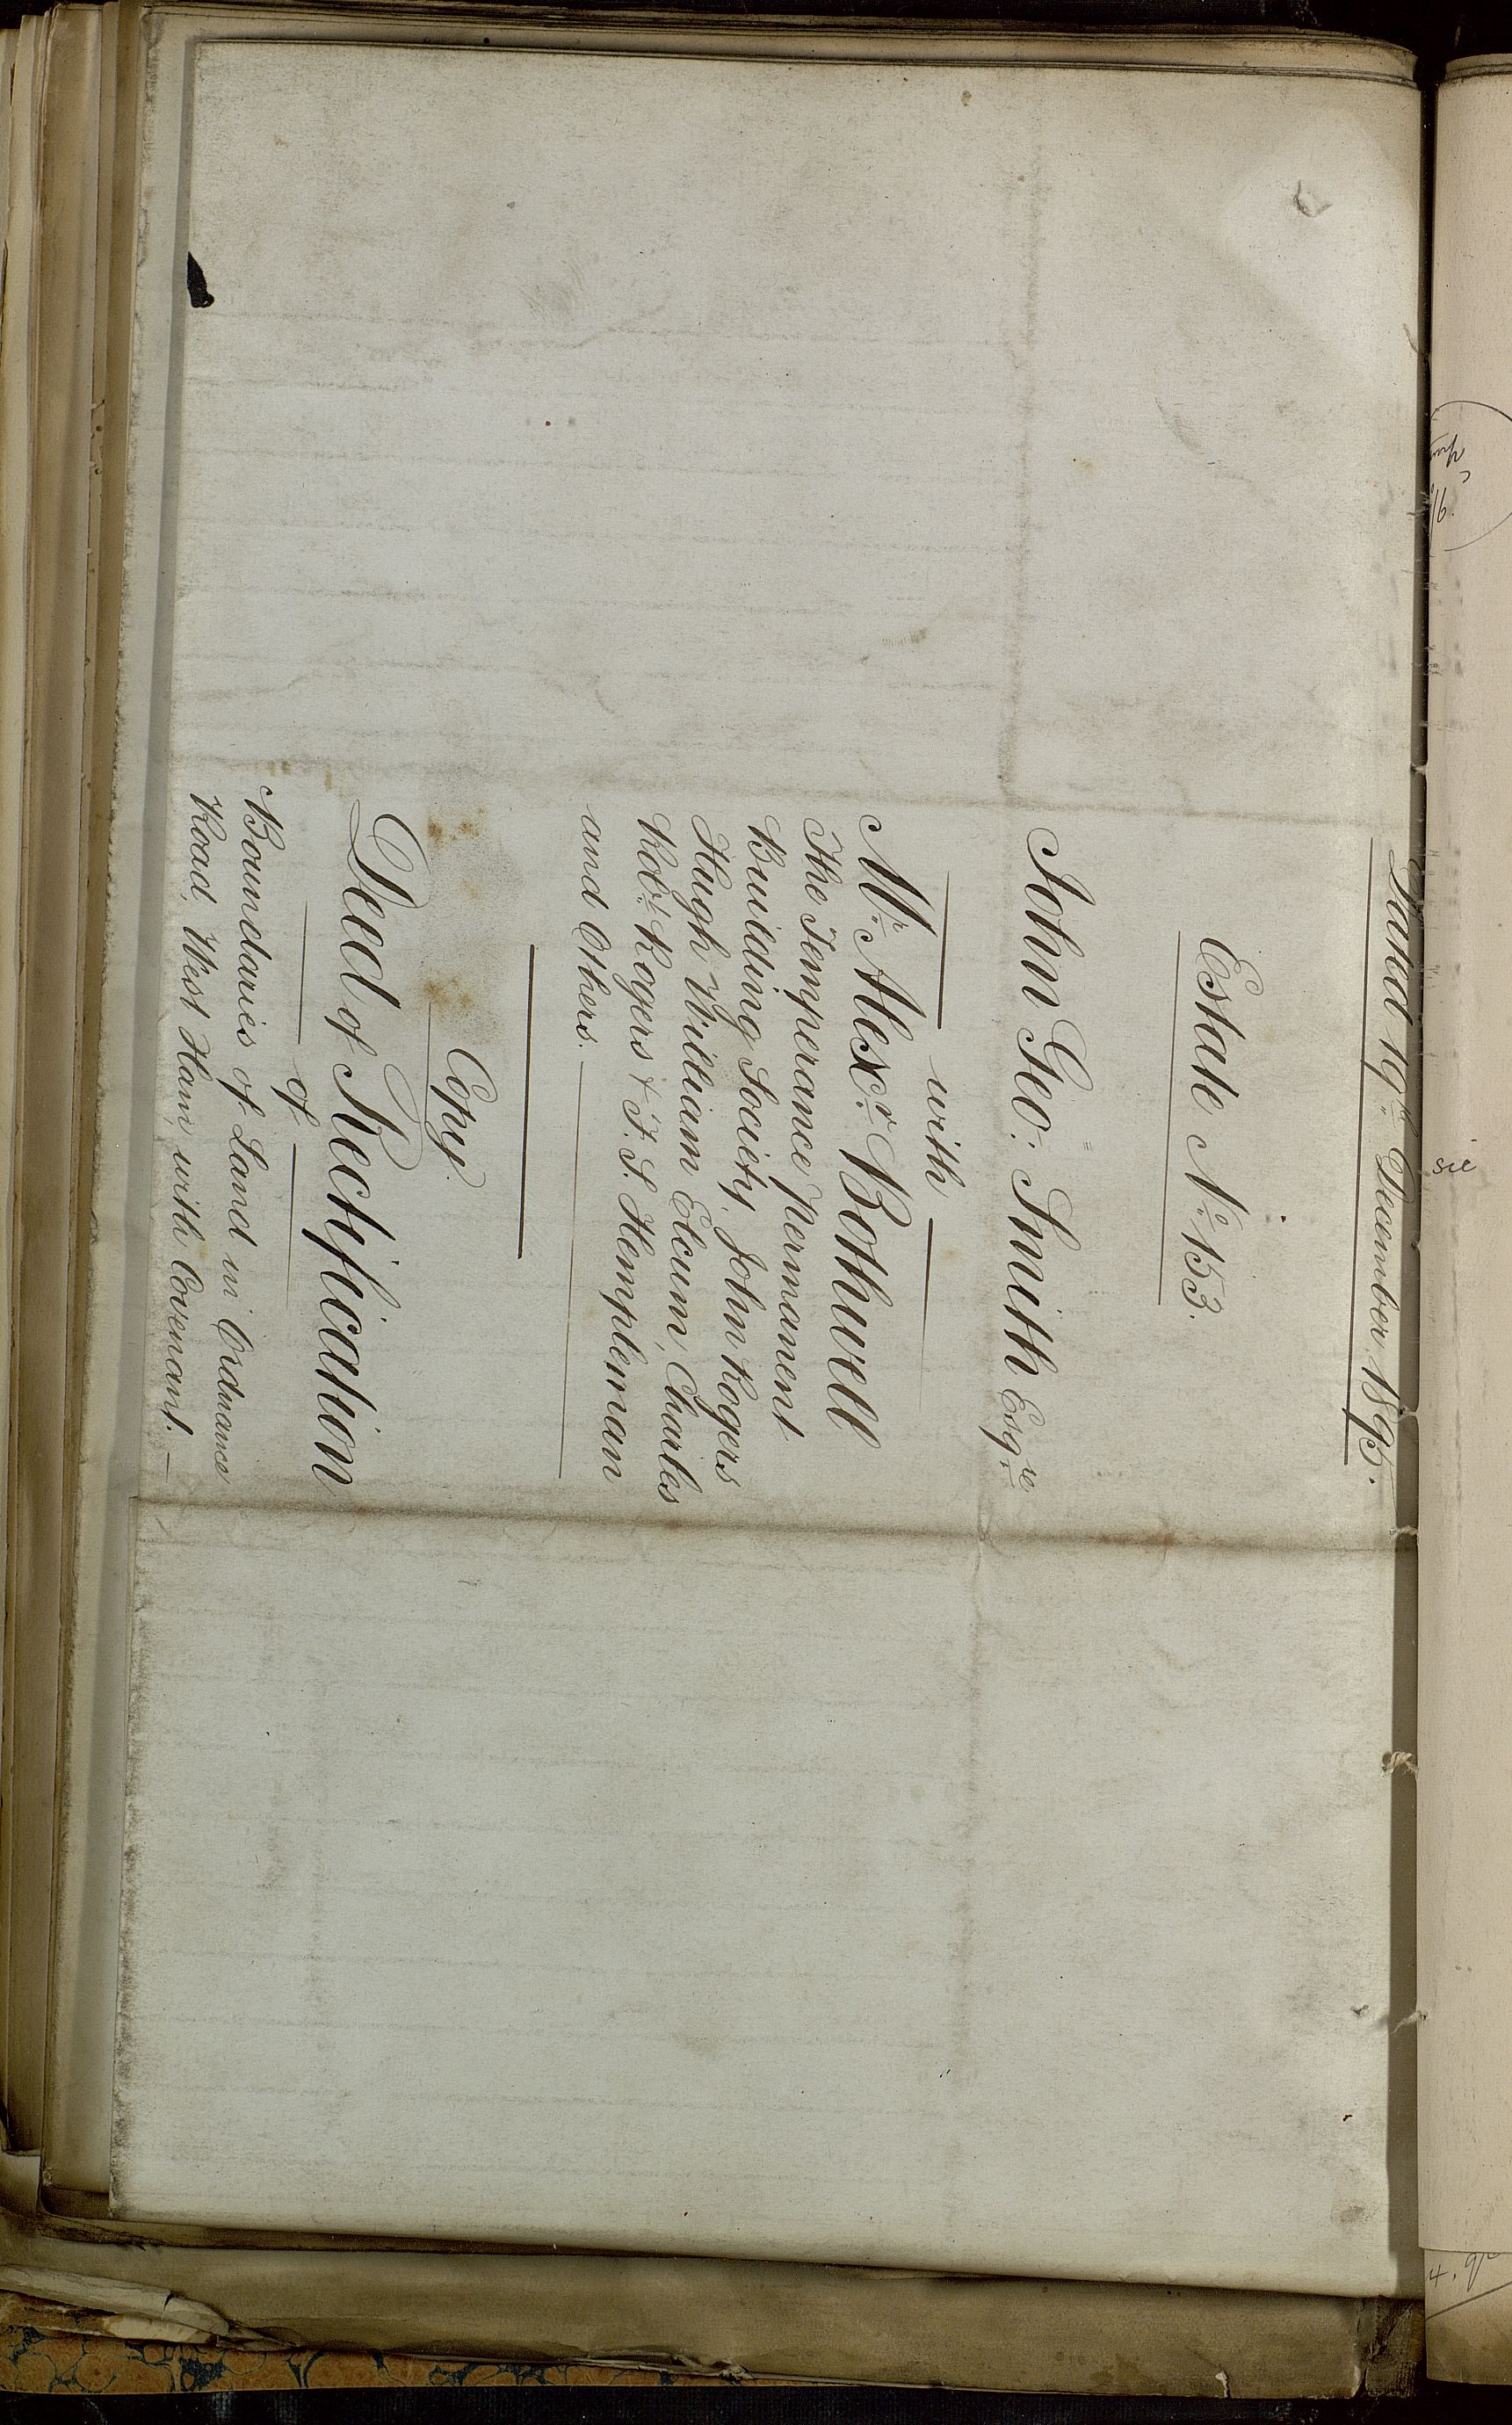 Dated 19th December 1895.
Estate No. 153.
John Geo: Smith Esqre
with
Mr. Alexr. Bothwell
The Temperance Permanent
Building Society, John Rogers
Hugh William Elcum, Charles
Robt. Rogers & T. S. Hempleman
and Others.
Copy.
Deed of Rectification
of
Boundaries of Land in Ordnance
Road, West Ham, with Covenant. —
sic